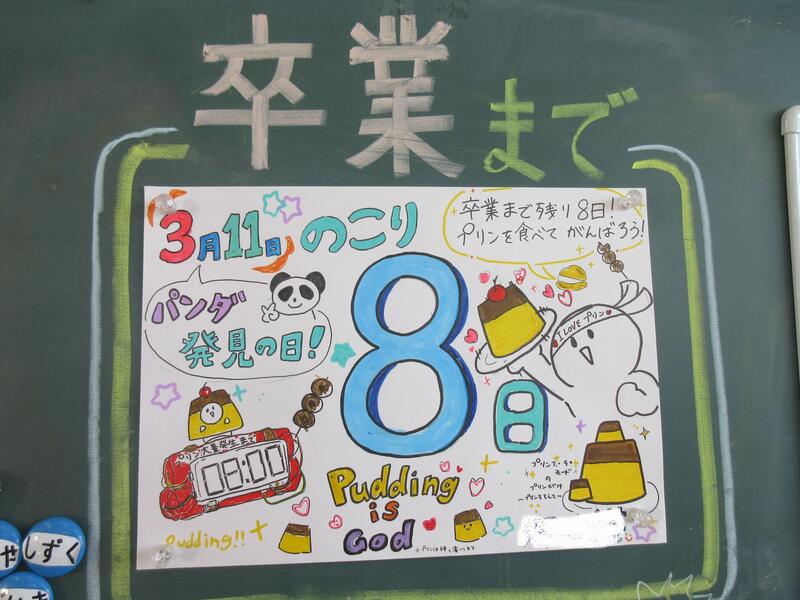 卒業まで
3月11日 のこり
8日
卒業まで残り8日!
プリンを食べて がんばろう!
パンダ
発見の日!
I LOVE プリン
プリン大量発生まで
08:00
Pudding!!
Pudding
is
God
プリンア・ラ・
モード
の
プリンだけ
しずく